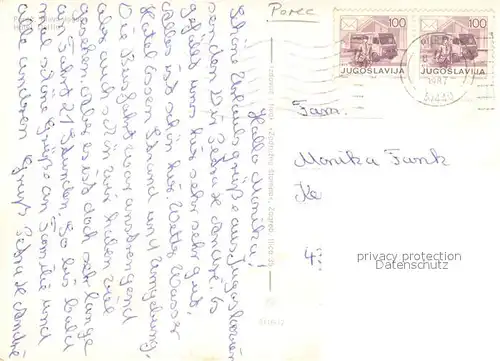 Porec
100
100
JUGOSLAVIJA
JUGOSLAVIJA
Hallo Monika!
Schöne Urlaubsgrüße aus Jugoslawien
senden Dir Petra + André. Es
gefällt uns hier sehr gut,
alles ist schön hier. Wetter, Wasser
Hotel, Essen, Strand und Umgebung.
Die Busfahrt war anstrengend
aber auch schön. Wir haben viel
gesehen. Aber es ist doch sehr lange
an Fahrt 21 Stunden. So bis bald
mal schöne Grüße an Familie und
alle anderen. Gruß Petra + André
Fam.
Monika Funk
Ke
4
privacy protection
Datenschutz